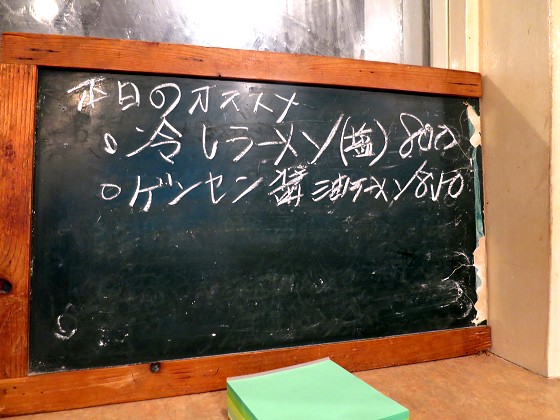 本日のオススメ
○冷しラーメン(塩)800
○ゲンセン醤油ラーメン850